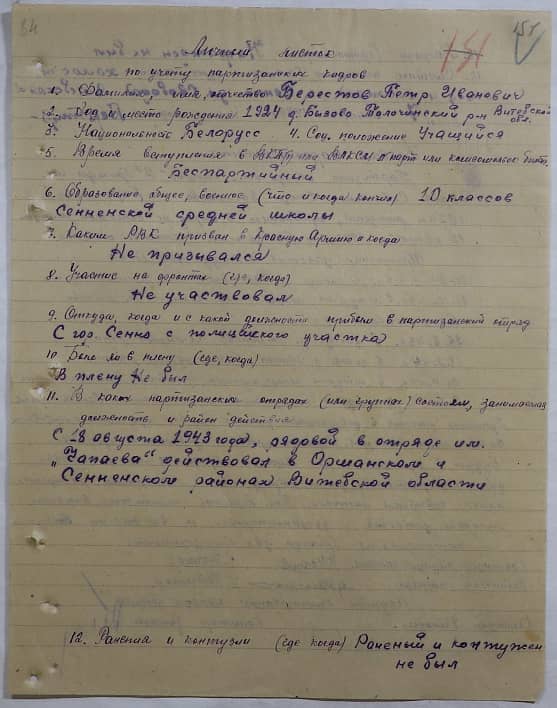 84
151
Личный листок
по учету партизанских кадров
1. Фамилия имя, отчество Берестов Петр Иванович
2. Год и место рождения 1924 д. Вязово Толочинский р-н Витебской обл.
3. Национальность Белорусс 4. Соц. положение Учащийся
5. Время вступления в ВКП(б) или ВЛКСМ № парт или комсомольск. билет.
Беспартийный
6. Образование общее, военное (что и когда кончил) 10 классов
Сенненской средней школы
7. Каким РВК призван в Красную Армию и когда
Не призывался
8. Участие на фронтах (где, когда)
Не участвовал
9. Откуда, когда и с какой должности прибыл в партизанский отряд
С гор. Сенно с полицейского участка
10. Был ли в плену (где, когда)
В плену Не был
11. В каких партизанских отрядах (или группах) состоял, занимаемая
должность и район действия
С 18 августа 1943 года, рядовой в отряде им.
"Чапаева" действовал в Оршанском и
Сенненском районах Витебской области
12. Ранения и контузии (где когда) Раненый и контужен
не был